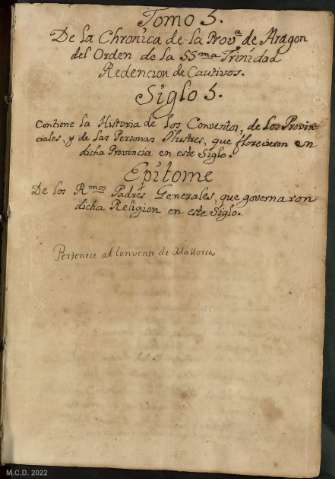 Tomo 5.
De la Chronica de la Prov.ª de Aragon
del Orden de la SSma Trinidad
Redencion de Cautivos.
Siglo 5.
Contiene la Historia de los Conventos, de los Provin-
ciales, y de las Personas Illustres, que florecieron en
dicha Provincia en este Siglo.
Epitome
De los Rmos Padres Generales, que governaron
dicha Religion en este Siglo.
Pertenece al Convento de Mallorca
M.C.D. 2022